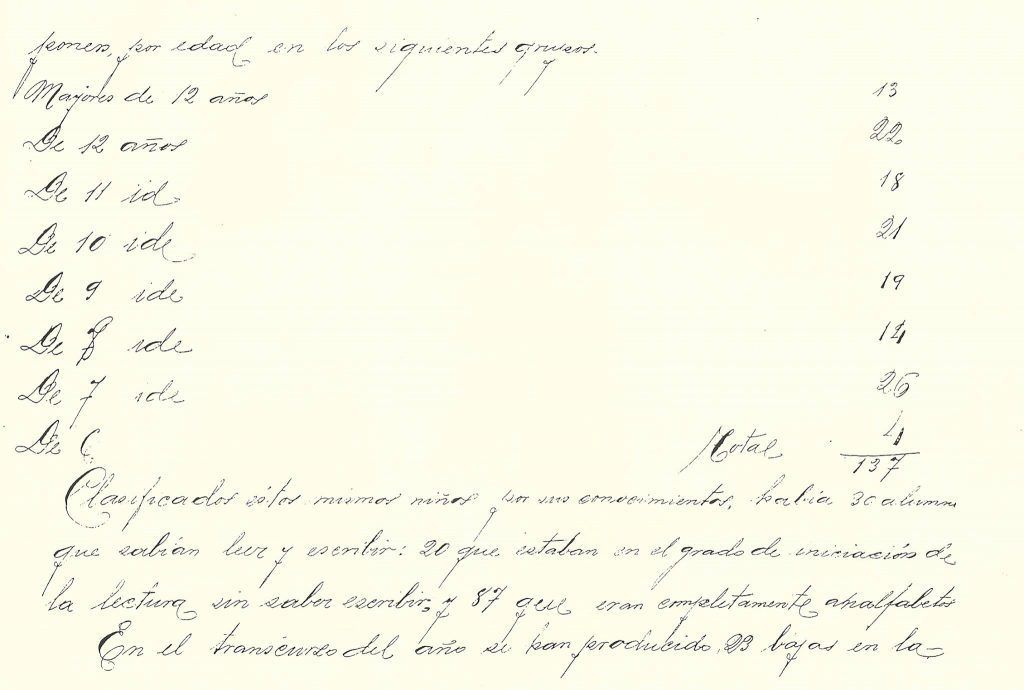 ponen, por edad en los siguientes grupos.
Mayores de 12 años 13
De 12 años 22
De 11 id 18
De 10 ide 21
De 9 ide 19
De 8 ide 14
De 7 ide 26
De 6 Total 4
137
Clasificados éstos mismos niños por sus conocimientos, había 30 alumnos
que sabían leer y escribir: 20 que estaban en el grado de iniciación de
la lectura sin saber escribir, y 87 que eran completamente analfabetos
En el transcurso del año se han producido 23 bajas en la-